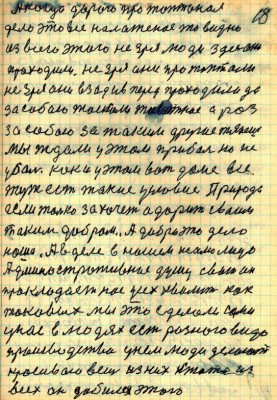 68
А когда дорога протоптана
дело это все налаженое то видно
из всего этого не зря люди здесь они
проходили, не зря они протоптали
не зря они взад и в перед проходили да
за собою а раз
за собою за таким другие
мы ждали у этом прибал но не
убал. как и у этом вот доме все
тут же ест такие условие Природа
если только захочет одарит своим
таким добром. А добро это дело
наше. А в деле в нашем
Административное душу свою он
прокладает нас усех хвалит как
таковых мы это сделали сами
у нас в людях ест разного вида
производства у нем люди делают
красиво всем из них
всех он добился этого